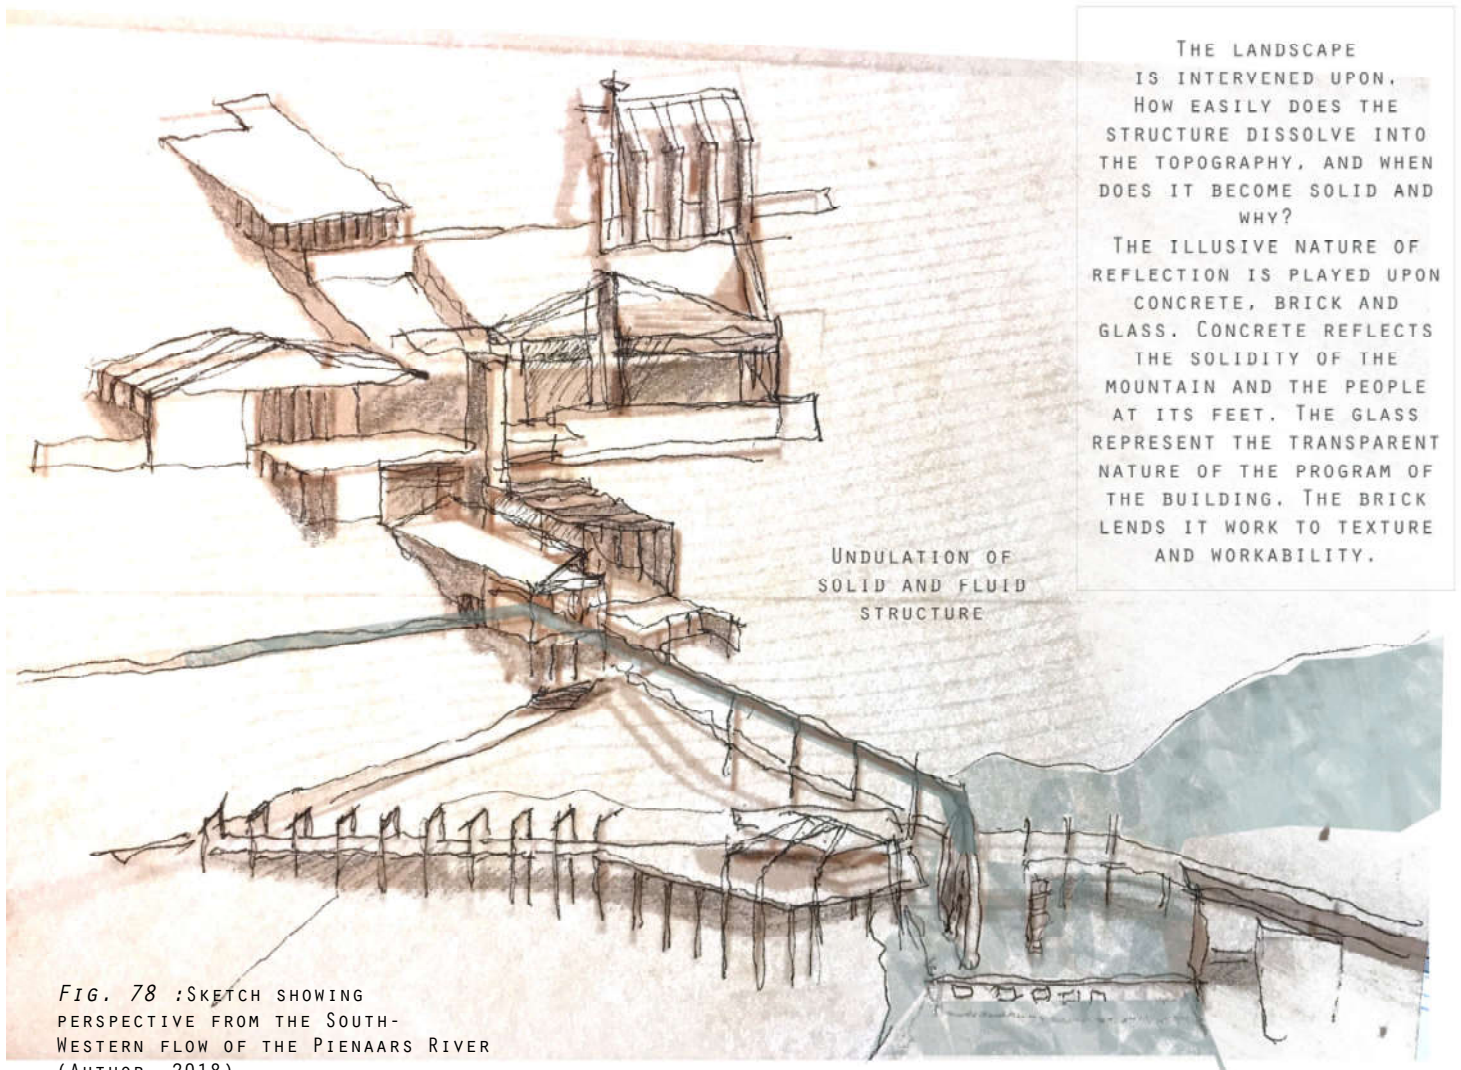 THE LANDSCAPE
IS INTERVENED UPON.
HOW EASILY DOES THE
STRUCTURE DISSOLVE INTO
THE TOPOGRAPHY, AND WHEN
DOES IT BECOME SOLID AND
WHY?
THE ILLUSIVE NATURE OF
REFLECTION IS PLAYED UPON
CONCRETE, BRICK AND
GLASS. CONCRETE REFLECTS
THE SOLIDITY OF THE
MOUNTAIN AND THE PEOPLE
AT ITS FEET. THE GLASS
REPRESENT THE TRANSPARENT
NATURE OF THE PROGRAM OF
THE BUILDING. THE BRICK
LENDS IT WORK TO TEXTURE
AND WORKABILITY.
UNDULATION OF
SOLID AND FLUID
STRUCTURE
FIG. 78 :SKETCH SHOWING
PERSPECTIVE FROM THE SOUTH-
WESTERN FLOW OF THE PIENAARS RIVER
(AUTHOR, 2018)